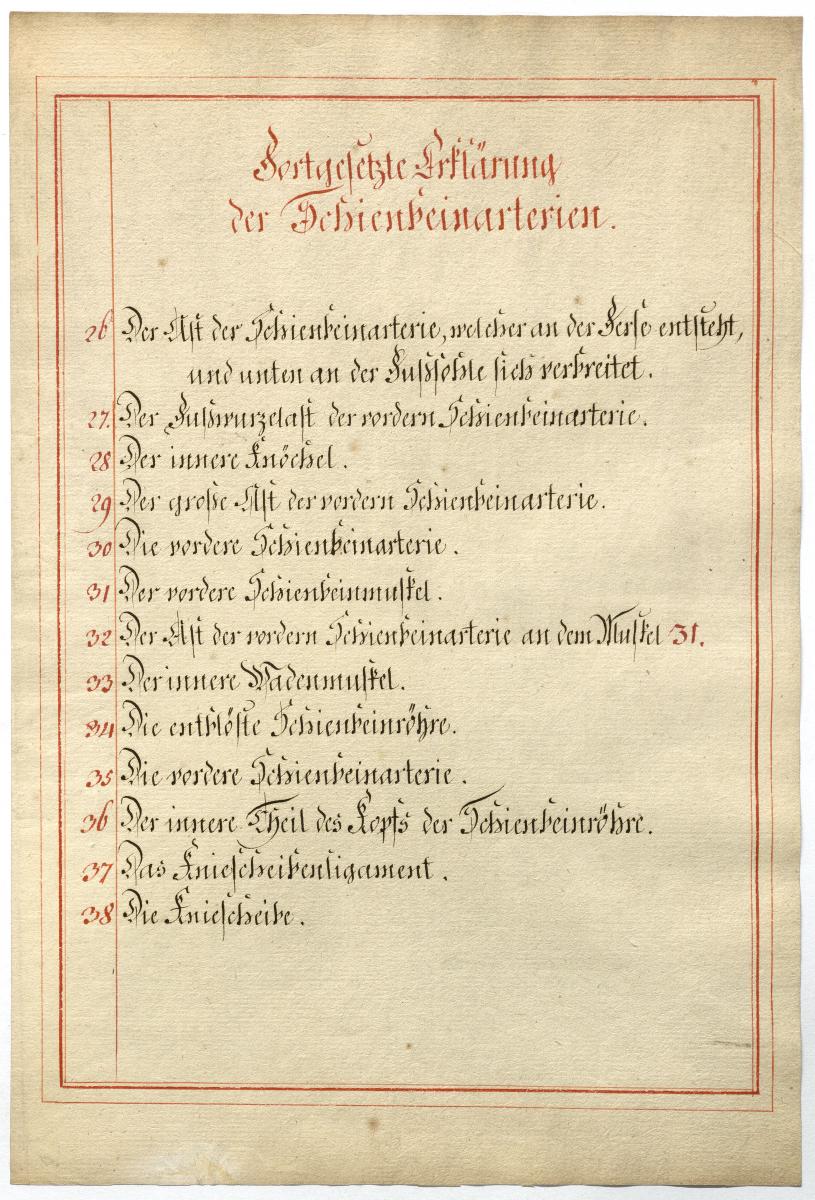 Fortgesetzte Erklärung
der Schienbeinarterien.
26 Der Ast der Schienbeinarterie, welcher an der Ferse entsteht,
und unten an der Fußsohle sich verbreitet.
27. Der Fußwurzelast der vordern Schienbeinarterie.
28 Der innere Knöchel.
29 Der große Ast der vordern Schienbeinarterie.
30 Die vordere Schienbeinarterie.
31 Der vordere Schienbeinmuskel.
32 Der Ast der vordern Schienbeinarterie an dem Muskel 31.
33 Der innere Wadenmuskel.
34 Die entblöste Schienbeinröhre.
35 Die vordere Schienbeinarterie.
36 Der innere Theil des Kopfs der Schienbeinröhre.
37 Das Kniescheibenligament.
38 Die Kniescheibe.